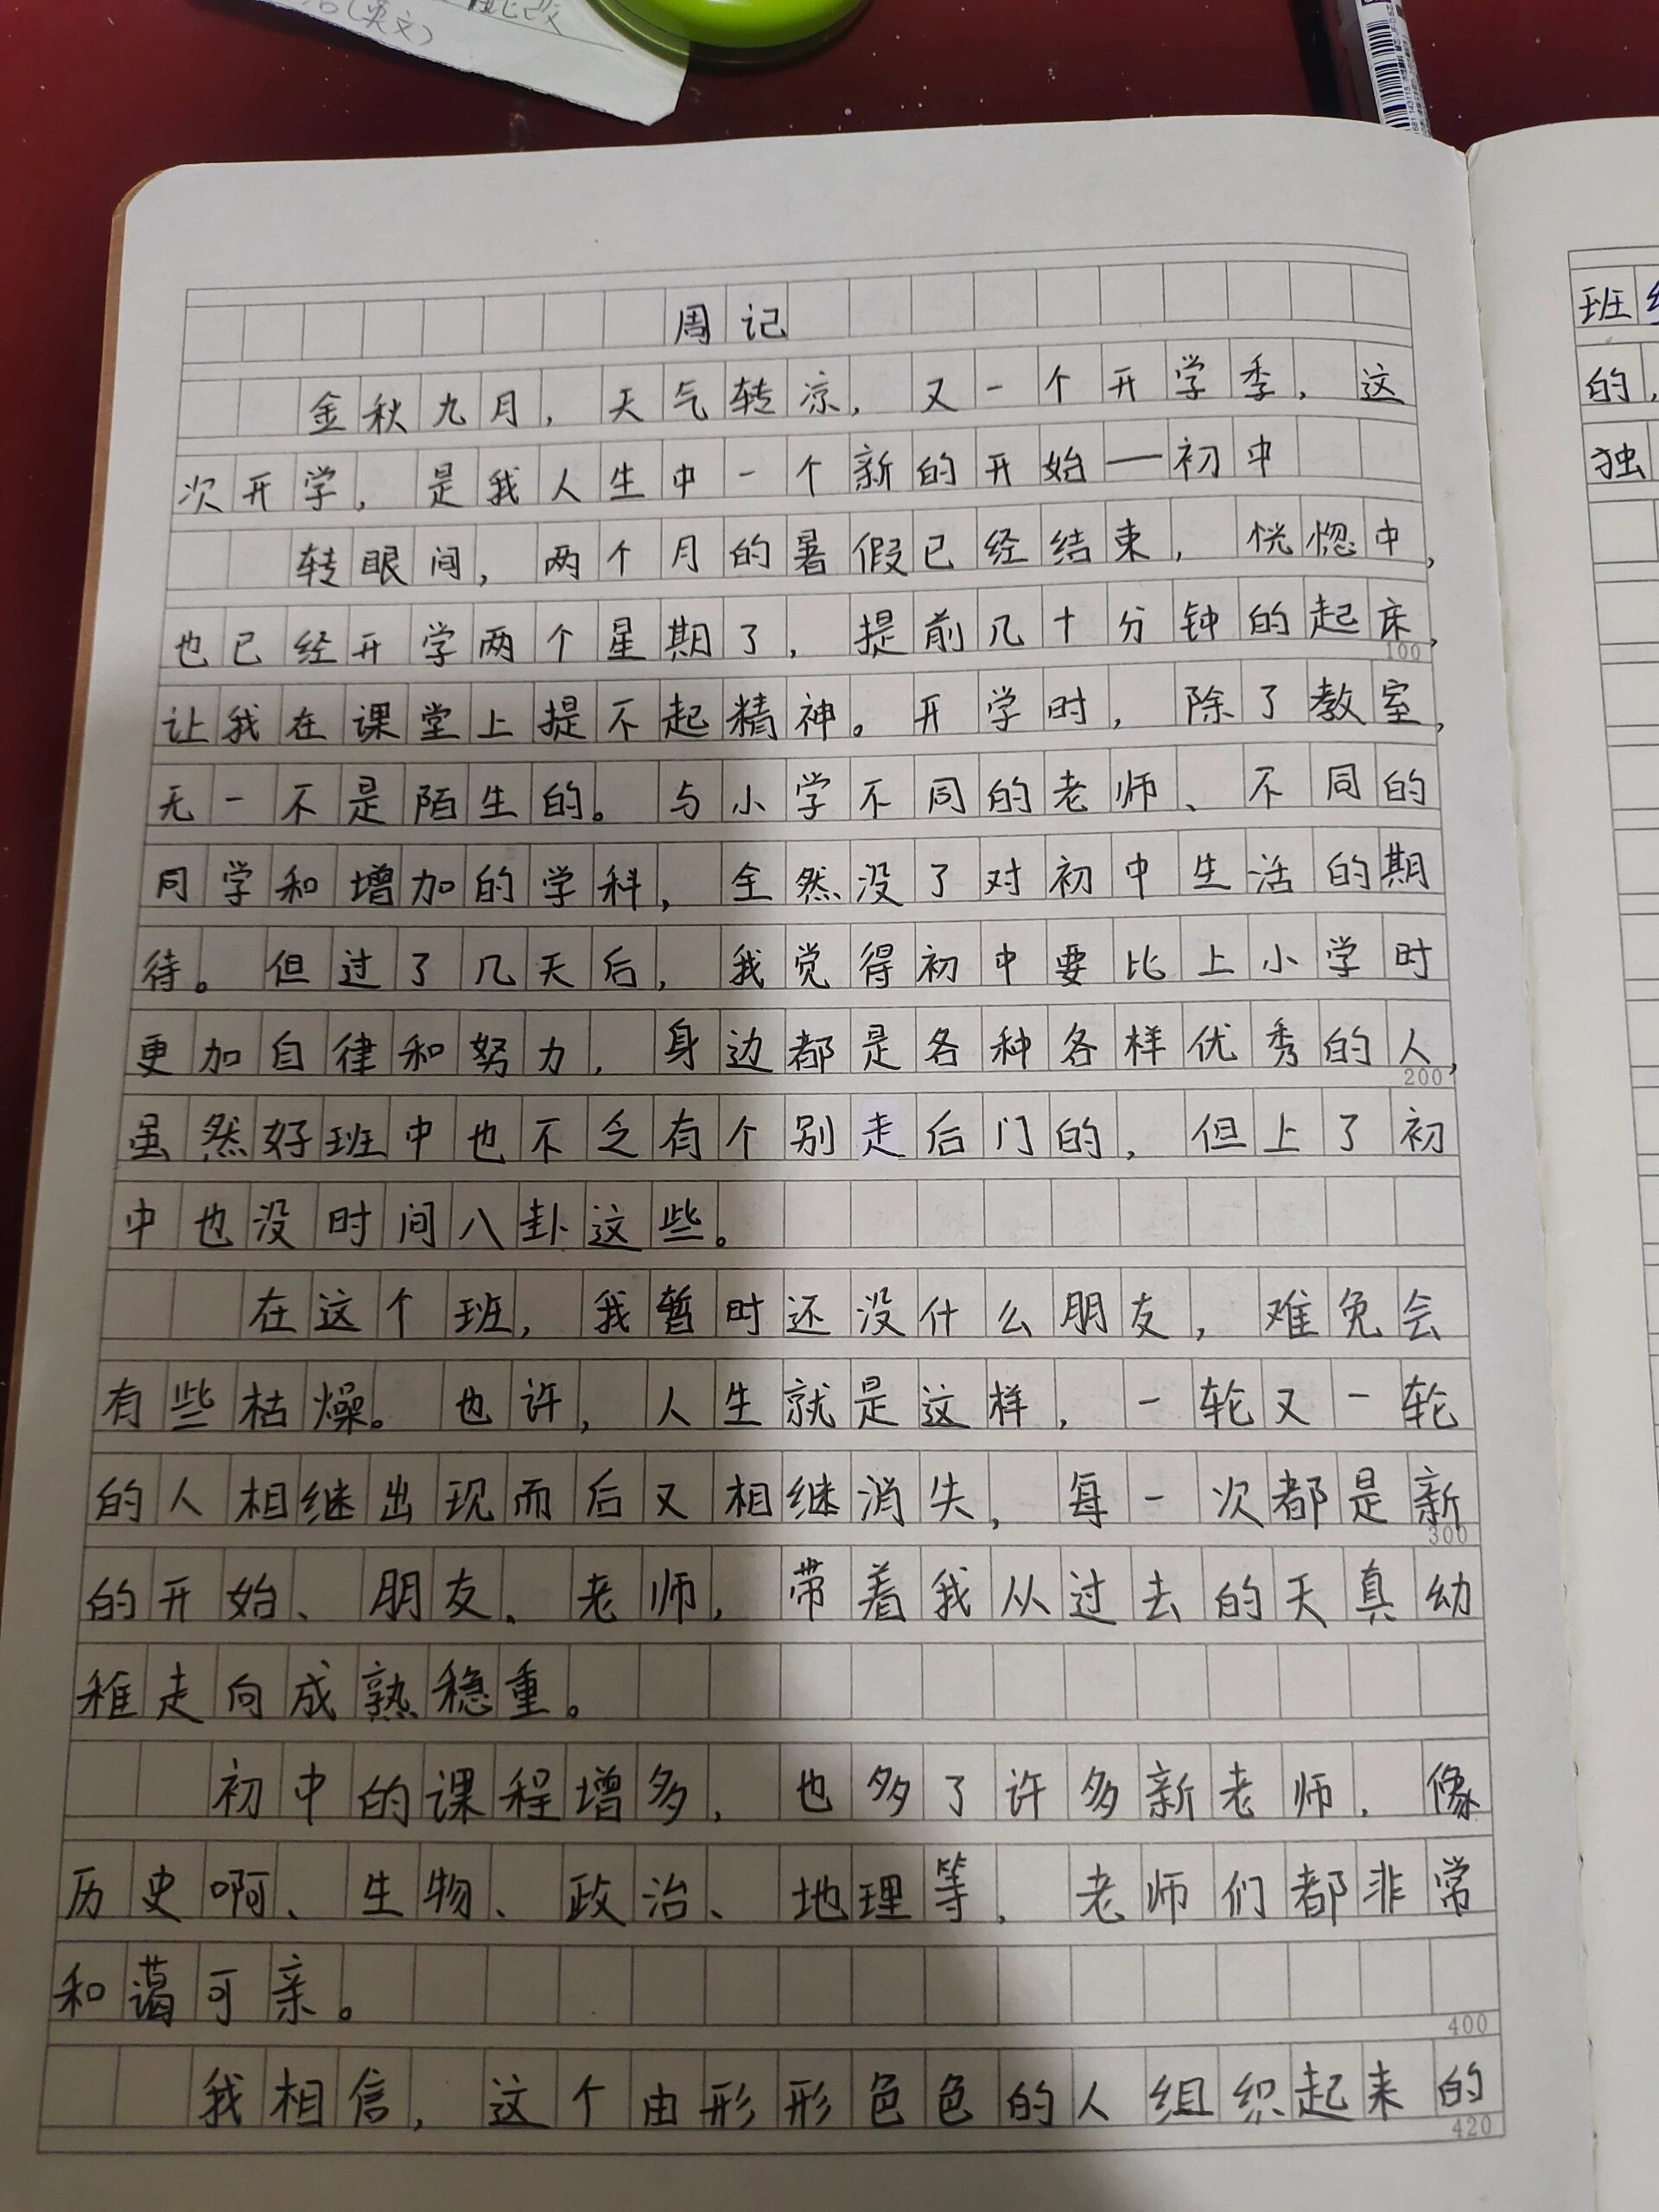 (英文)
周记
金秋九月，天气转凉，又一个开学季，这
次开学，是我人生中一个新的开始—初中
转眼间，两个月的暑假已经结束，恍惚中，
也已经开学两个星期了，提前几十分钟的起床，
100
让我在课堂上提不起精神。开学时，除了教室，
无一不是陌生的。与小学不同的老师、不同的
同学和增加的学科，全然没了对初中生活的期
待。但过了几天后，我觉得初中要比上小学时
更加自律和努力，身边都是各种各样优秀的人，
200
虽然好班中也不乏有个别走后门的，但上了初
中也没时间八卦这些。
在这个班，我暂时还没什么朋友，难免会
有些枯燥。也许，人生就是这样，一轮又一轮
的人相继出现而后又相继消失，每一次都是新
300
的开始、朋友、老师，带着我从过去的天真幼
稚走向成熟稳重。
初中的课程增多，也多了许多新老师，像
历史啊、生物、政治、地理等，老师们都非常
和蔼可亲。
400
我相信，这个由形形色色的人组织起来的
420
班
的，
独